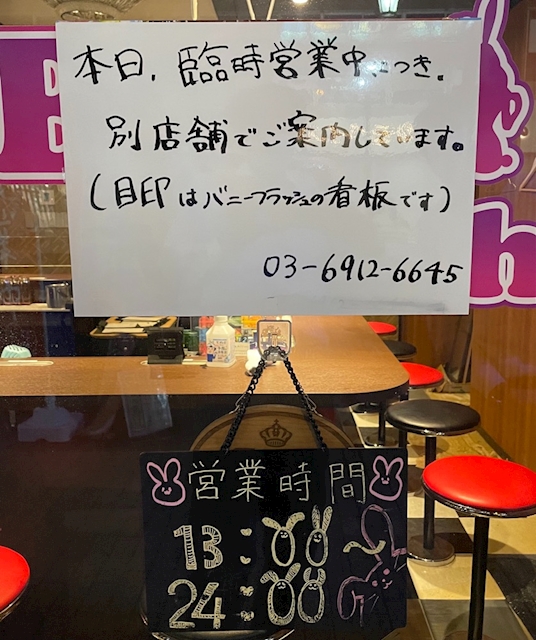 本日、臨時営業中につき、
別店舗でご案内しています。
（目印はバニーフラッシュの看板です）
03-6912-6645
営業時間
13:00～
24:00